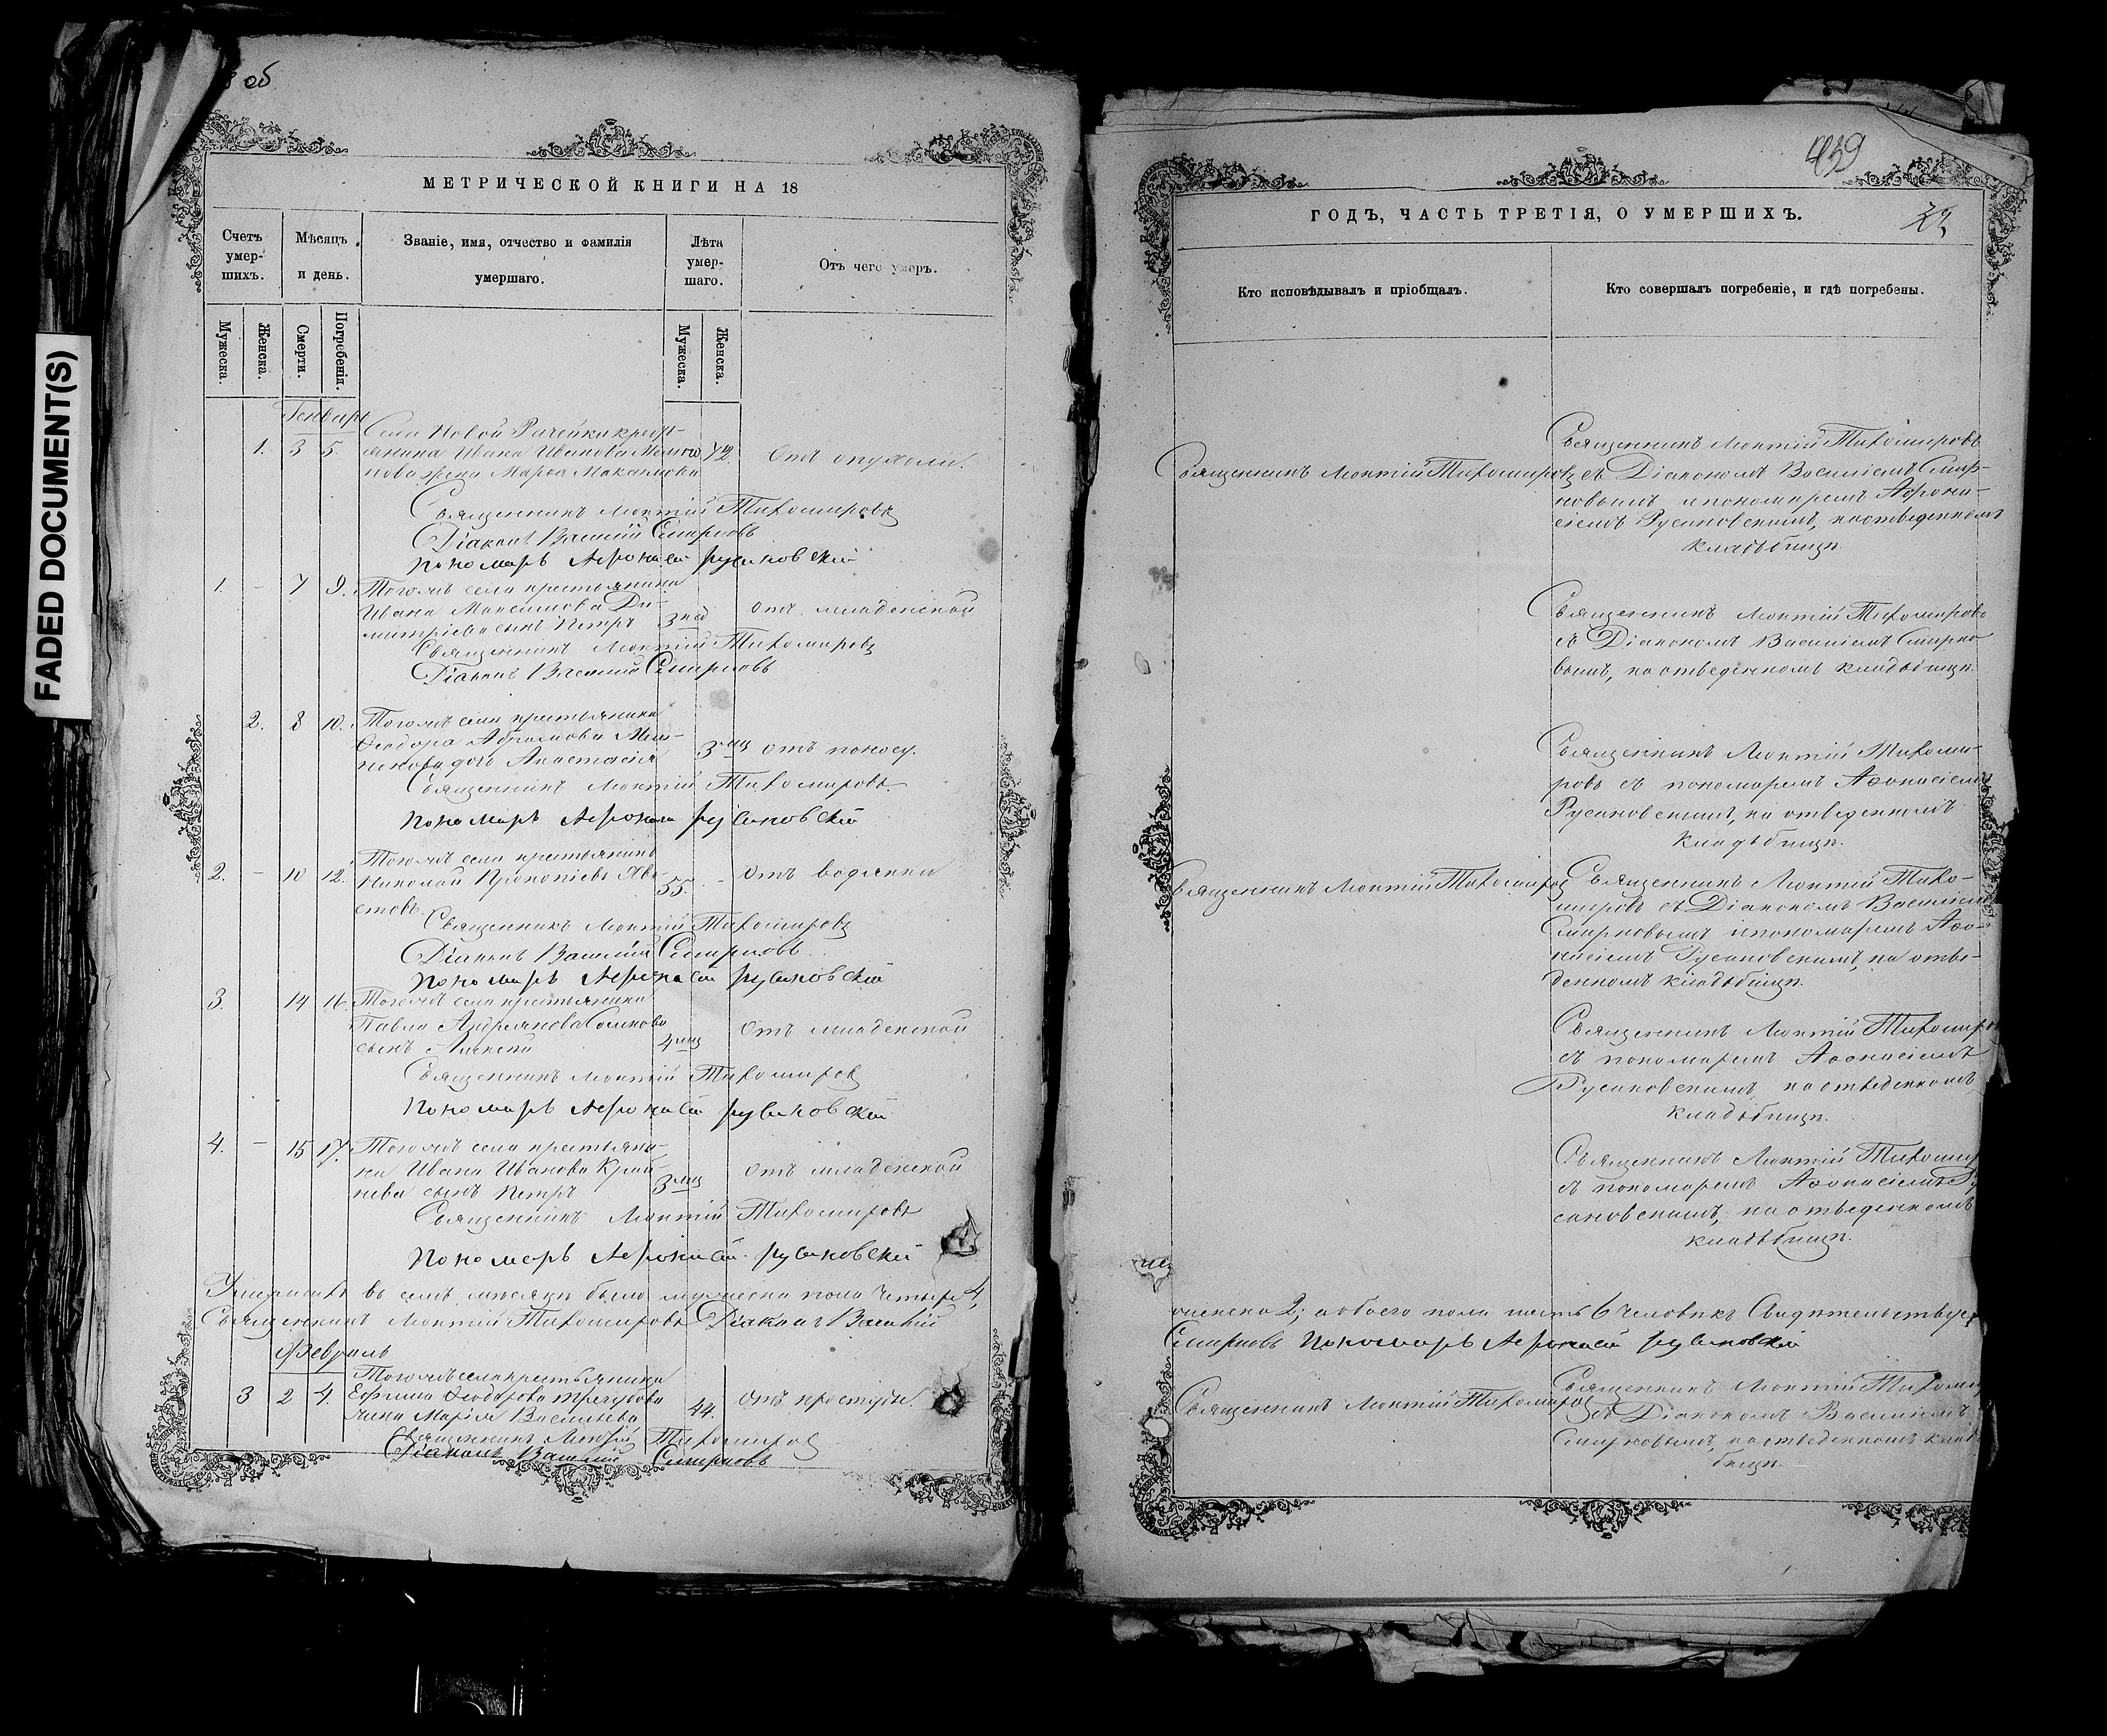 об
FADED DOCUMENT(S)
МЕТРИЧЕСКОЙ КНИГИ НА 18
Счетъ умер-шихъ.
Мужеска.
Женска.
Мѣсяцъ и день.
Смерти.
Погребенія.
Званіе, имя, отчество и фамилія
умершаго.
Лѣта умер-шаго.
Мужеска.
Женска.
Отъ чего умеръ.
Генварь
1. 3 5.
Села Новой Рачейки кресть-
янина Ивана Иванова
жена Марѳа
42
Отъ опухоли.
Священникъ Леонтій Тихомировъ
Діаконъ Василій Смирновъ
пономарь Аѳонасій русановскій
1. - 7 9.
Тогожъ села крестьянина
Ивана Максимова Ди-
митріева сынъ Петръ
3 нед
отъ младенской
Священникъ Леонтій Тихомировъ
Діаконъ Василій Смирновъ
2. 8 10.
Тогожъ села крестьянина
Ѳеодора Абрамова
дочь Анастасія
3 мц
отъ поносу.
Священникъ Леонтій Тихомировъ
пономарь Аѳонасій русановскій
2. - 10 12.
Тогожъ села крестьянинъ
Николай Прокопіевъ
55. -
отъ водянки
Священникъ Леонтій Тихомировъ
Діаконъ Василій Смирновъ
пономарь Аѳонасій русановскій
3. 14 16.
Тогожъ села крестьянина
Павла Андреянова
сынъ Алексѣй
4 мц
Отъ младенской
Священникъ Леонтій Тихомировъ
пономарь Аѳонасій русановскій
4. - 15 17.
Тогожъ села крестьяни-
на Ивана Иванова Край-
нева сынъ Петръ
3 мц
Отъ младенской
Священникъ Леонтій Тихомировъ
пономарь Аѳонасій русановскій
Умершихъ въ семъ мѣсяцѣ было мужеска пола четыре 4,
Священникъ Леонтій Тихомировъ Діаконъ Василій
Февраль
3 2 4.
Тогожъ села крестьянина
Ефима Ѳеодорова
жена Марія Васильева
44.
Отъ простуды.
Священникъ Леонтій Тихомировъ
Діаконъ Василій Смирновъ
439
ГОДЪ, ЧАСТЬ ТРЕТІЯ, О УМЕРШИХЪ.
Кто исповѣдывалъ и пріобщалъ.
Кто совершалъ погребеніе, и гдѣ погребены.
Священникъ Леонтій Тихомировъ
Священникъ Леонтій Тихомировъ
съ Діакономъ Василіемъ Смир-
новымъ и пономаремъ Аѳона-
сіемъ Русановскимъ, на отведенномъ
кладбищѣ.
Священникъ Леонтій Тихомировъ
съ Діакономъ Василіемъ Смирно-
вымъ, на отведенномъ кладбищѣ.
Священникъ Леонтій Тихоми-
ровъ съ пономаремъ Аѳонасіемъ
Русановскимъ, на отведенномъ
кладбищѣ.
Священникъ Леонтій Тихомировъ
Священникъ Леонтій Тихо-
мировъ съ Діакономъ Василіемъ
Смирновымъ и пономаремъ Аѳо-
насіемъ Русановскимъ, на отве-
денномъ кладбищѣ.
Священникъ Леонтій Тихомир
съ пономаремъ Аѳонасіемъ
Русановскимъ, на отведенномъ
кладбищѣ.
Священникъ Леонтій Тихомир
съ пономаремъ Аѳонасіемъ Ру
сановскимъ, на отведенномъ
кладбищѣ.
женска 2; а обоего пола шесть 6 человѣкъ Свидѣтельствуе
Смирновъ пономарь Аѳонасій русановскій
Священникъ Леонтій Тихомировъ
Священникъ Леонтій Тихоми
съ Діакономъ Василіемъ
Смирновымъ, на отведенномъ клад
бищѣ.